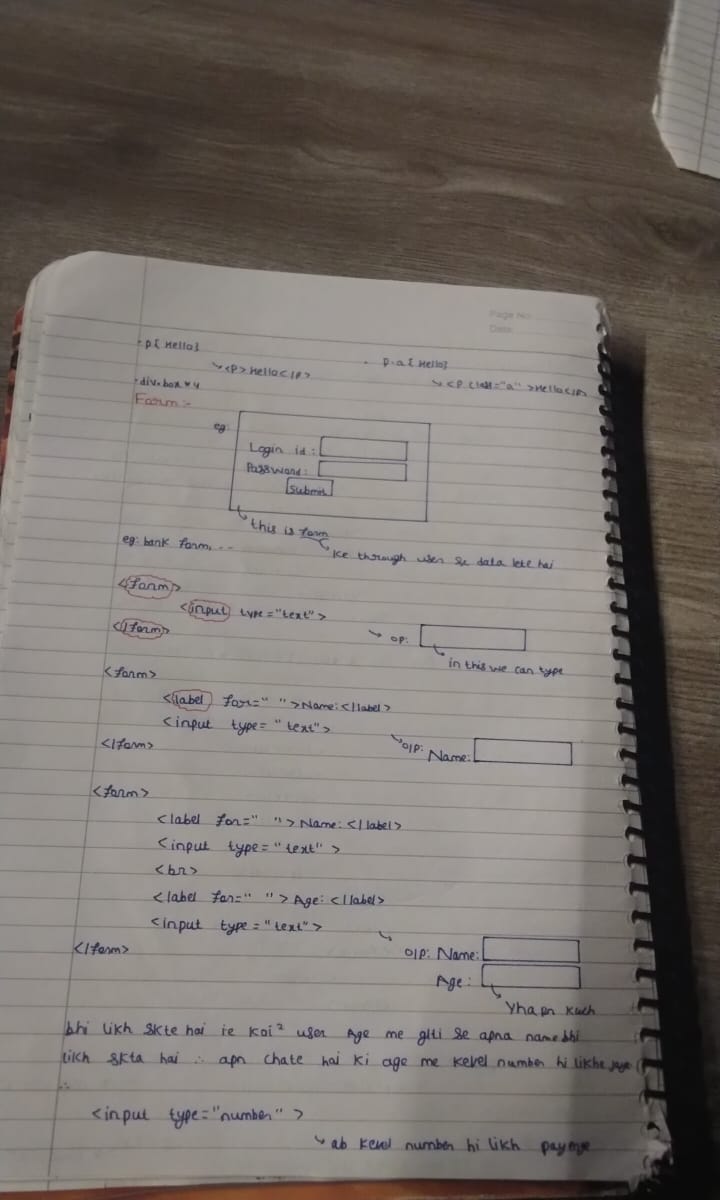 Page No.
Date
• p{Hello}
↳ <P>Hello</P>
• p.a{Hello}
↳ <p class="a">Hello</p>
• div.box*4
Form :-
eg:
Login id :
Password :
Submit
↳ this is form
↳ ke through user se data lete hai
eg: bank form, ...
<form>
<input type="text">
</form>
↳ OP:
↳ in this we can type
<form>
<label for=" ">Name:</label>
<input type="text">
</form>
↳ O/P: Name:
<form>
<label for=" ">Name:</label>
<input type="text">
<br>
<label for=" ">Age:</label>
<input type="text">
</form>
↳ O/P: Name:
Age:
↳ Yha pr kuch
bhi likh skte hai ie koi² user Age me glti se apna name bhi
likh skta hai ∴ apn chate hai ki age me kevel number hi likha jaye
∴
<input type="number">
↳ ab kevel number hi likh payenge